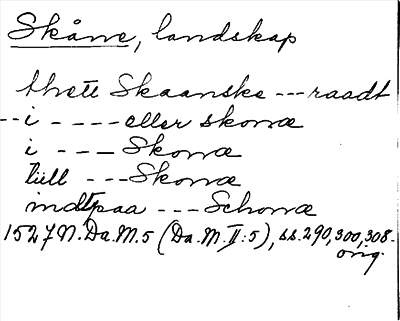 Skåne, landskap
thett Skaanske --- raadt
-- i - - - - eller skonæ
i - - - Skonæ
till --- Skonæ
indtpaa --- Schonæ
1527 N. Da. M. 5 (Da. M. II: 5), ss. 290, 300, 308.
orig.